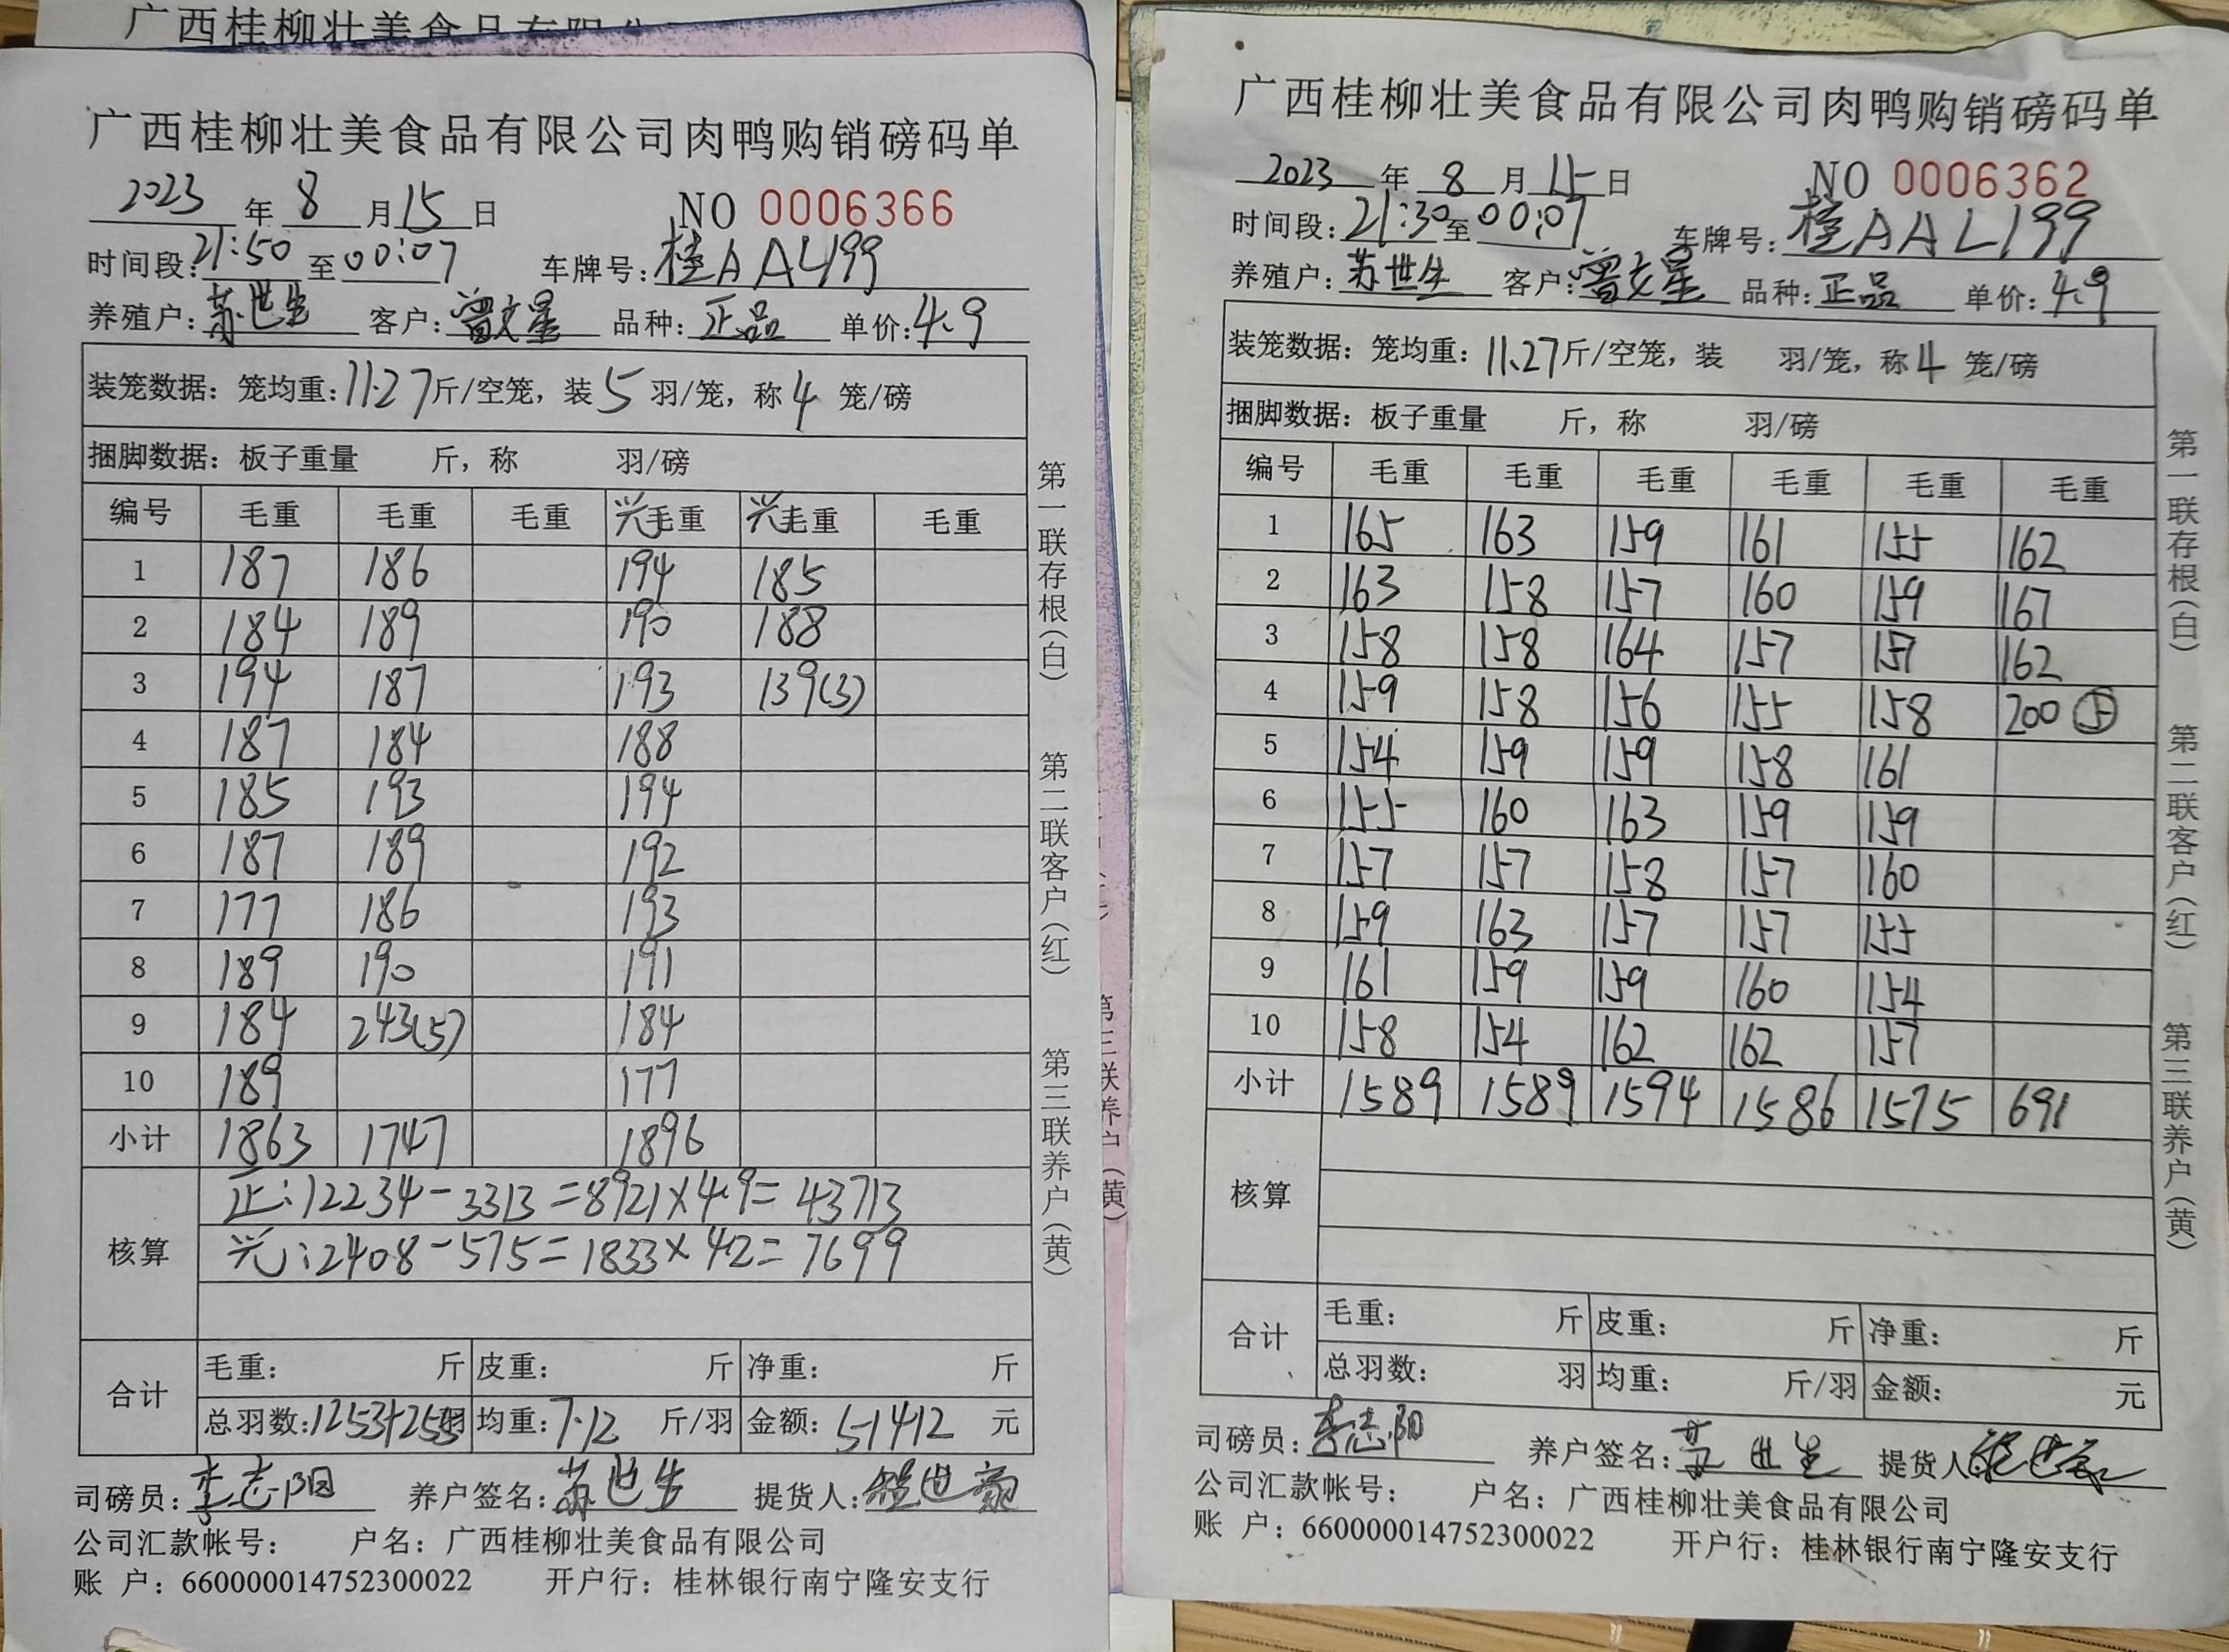 广西桂柳壮美食品有限公司
广西桂柳壮美食品有限公司肉鸭购销磅码单
2023 年 8 月 15 日 NO 0006366
时间段:21:50 至 00:07 车牌号:桂AAL199
养殖户:苏世生 客户:曾文星 品种:正品 单价:4.9
装笼数据:笼均重:11.27斤/空笼,装5羽/笼,称4笼/磅
捆脚数据:板子重量 斤,称 羽/磅
编号 毛重 毛重 毛重 兴毛重 兴毛重 毛重
1 187 186 194 185
2 184 189 190 188
3 194 187 193 139(3)
4 187 184 188
5 185 193 194
6 187 189 192
7 177 186 193
8 189 190 191
9 184 243(5) 184
10 189 177
小计 1863 1747 1896
核算 正:12234-3313=8921×4.9=43713
兴:2408-575=1833×4.2=7699
合计 毛重: 斤 皮重: 斤 净重: 斤
总羽数:1253+255羽 均重:7.12 斤/羽 金额:51412 元
司磅员:李志阳 养户签名:苏世生 提货人:
公司汇款帐号: 户名:广西桂柳壮美食品有限公司
账 户:660000014752300022 开户行:桂林银行南宁隆安支行
第一联存根(白) 第二联客户(红) 第三联养户(黄)
第三联养户(黄)
广西桂柳壮美食品有限公司肉鸭购销磅码单
2023 年 8 月 15 日 NO 0006362
时间段:21:30 至 00:07 车牌号:桂AAL199
养殖户:苏世生 客户:曾文星 品种:正品 单价:4.9
装笼数据:笼均重:11.27斤/空笼,装 羽/笼,称4笼/磅
捆脚数据:板子重量 斤,称 羽/磅
编号 毛重 毛重 毛重 毛重 毛重 毛重
1 165 163 159 161 155 162
2 163 158 157 160 159 167
3 158 158 164 157 157 162
4 159 158 156 155 158 200⑤
5 154 159 159 158 161
6 155 160 163 159 159
7 157 157 158 157 160
8 159 163 157 157 155
9 161 159 159 160 154
10 158 154 162 162 157
小计 1589 1589 1594 1586 1575 691
核算
合计 毛重: 斤 皮重: 斤 净重: 斤
总羽数: 羽 均重: 斤/羽 金额: 元
司磅员:李志阳 养户签名:苏世生 提货人:
公司汇款帐号: 户名:广西桂柳壮美食品有限公司
账 户:660000014752300022 开户行:桂林银行南宁隆安支行
第一联存根(白) 第二联客户(红) 第三联养户(黄)